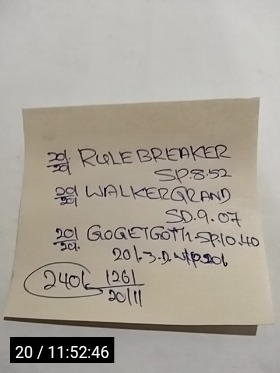 20/. RULEBREAKER
20/. SP.8.52
20/. WALKERGRAND
20/. SD.9.07
20/. GOGETGOTH.SP.10.40
20/.
240/. 126/
20/11
20 / 11:52:46